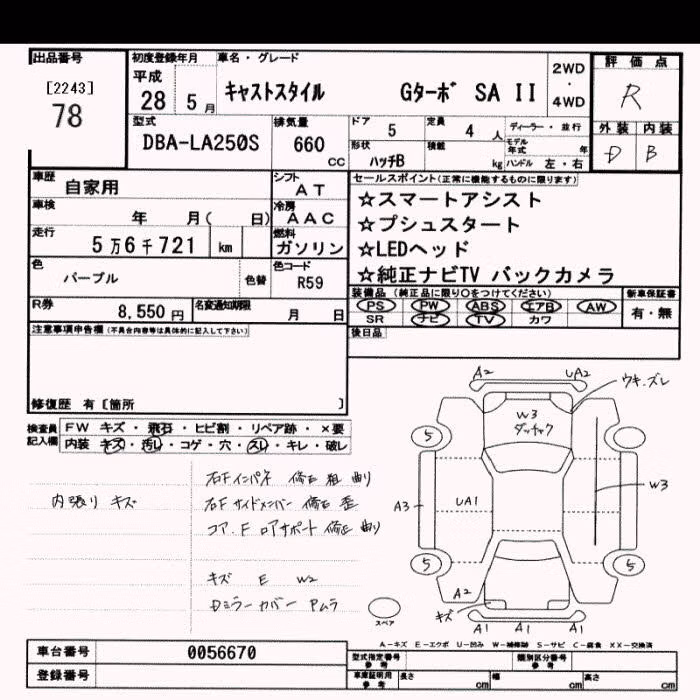 出品番号
[2243]
78
初度登録年月
平成
28 5月
車名・グレード
キャストスタイル Gターボ SA II
2WD
・
4WD
評価点
R
外装 内装
D B
型式
DBA-LA250S
排気量
660
cc
ドア
5
定員
4 人
ディーラー・並行
形状
ハッチB
積載
kg
モデル年式 年
ハンドル 左・右
車歴
自家用
シフト
AT
車検
年 月( 日)
冷房
AAC
走行
5万6千721 km
燃料
ガソリン
色
パープル
色替
色コード
R59
R券
8,550円
名変通知期限
月 日
セールスポイント(正常に機能するものに限ります)
☆スマートアシスト
☆プシュスタート
☆LEDヘッド
☆純正ナビTV バックカメラ
装備品 (純正品に限り○をつけてください)
PS PW ABS エアB AW
SR ナビ TV カワ
新車保証書
有・無
後日品
注意事項申告欄(不具合内容等は具体的に記入して下さい)
修復歴 有[箇所 ]
検査員記入欄
FW キズ・飛石・ヒビ割・リペア跡・×要
内装 キズ・汚レ・コゲ・穴・スレ・キレ・破レ
内張り キズ
右Fインパネ 修正 粗 曲り
右F サイドメンバー 修正 歪
コア.F ロアサポート 修正 曲り
キズ E W2
Dミラーカバー アムラ
A2
UA2
ウキ.ズレ
W3
ダッチャク
5
5
W3
A3
UA1
5
5
A2
キズ
A1
A1
A1
スペア
A-キズ E-エクボ U-凹み W-補修跡 S-サビ C-腐食 XX-交換済
車台番号
0056670
登録番号
型式指定番号
参考
類別区分番号
参考
車庫証明用
参考
長さ cm
幅 cm
高さ cm